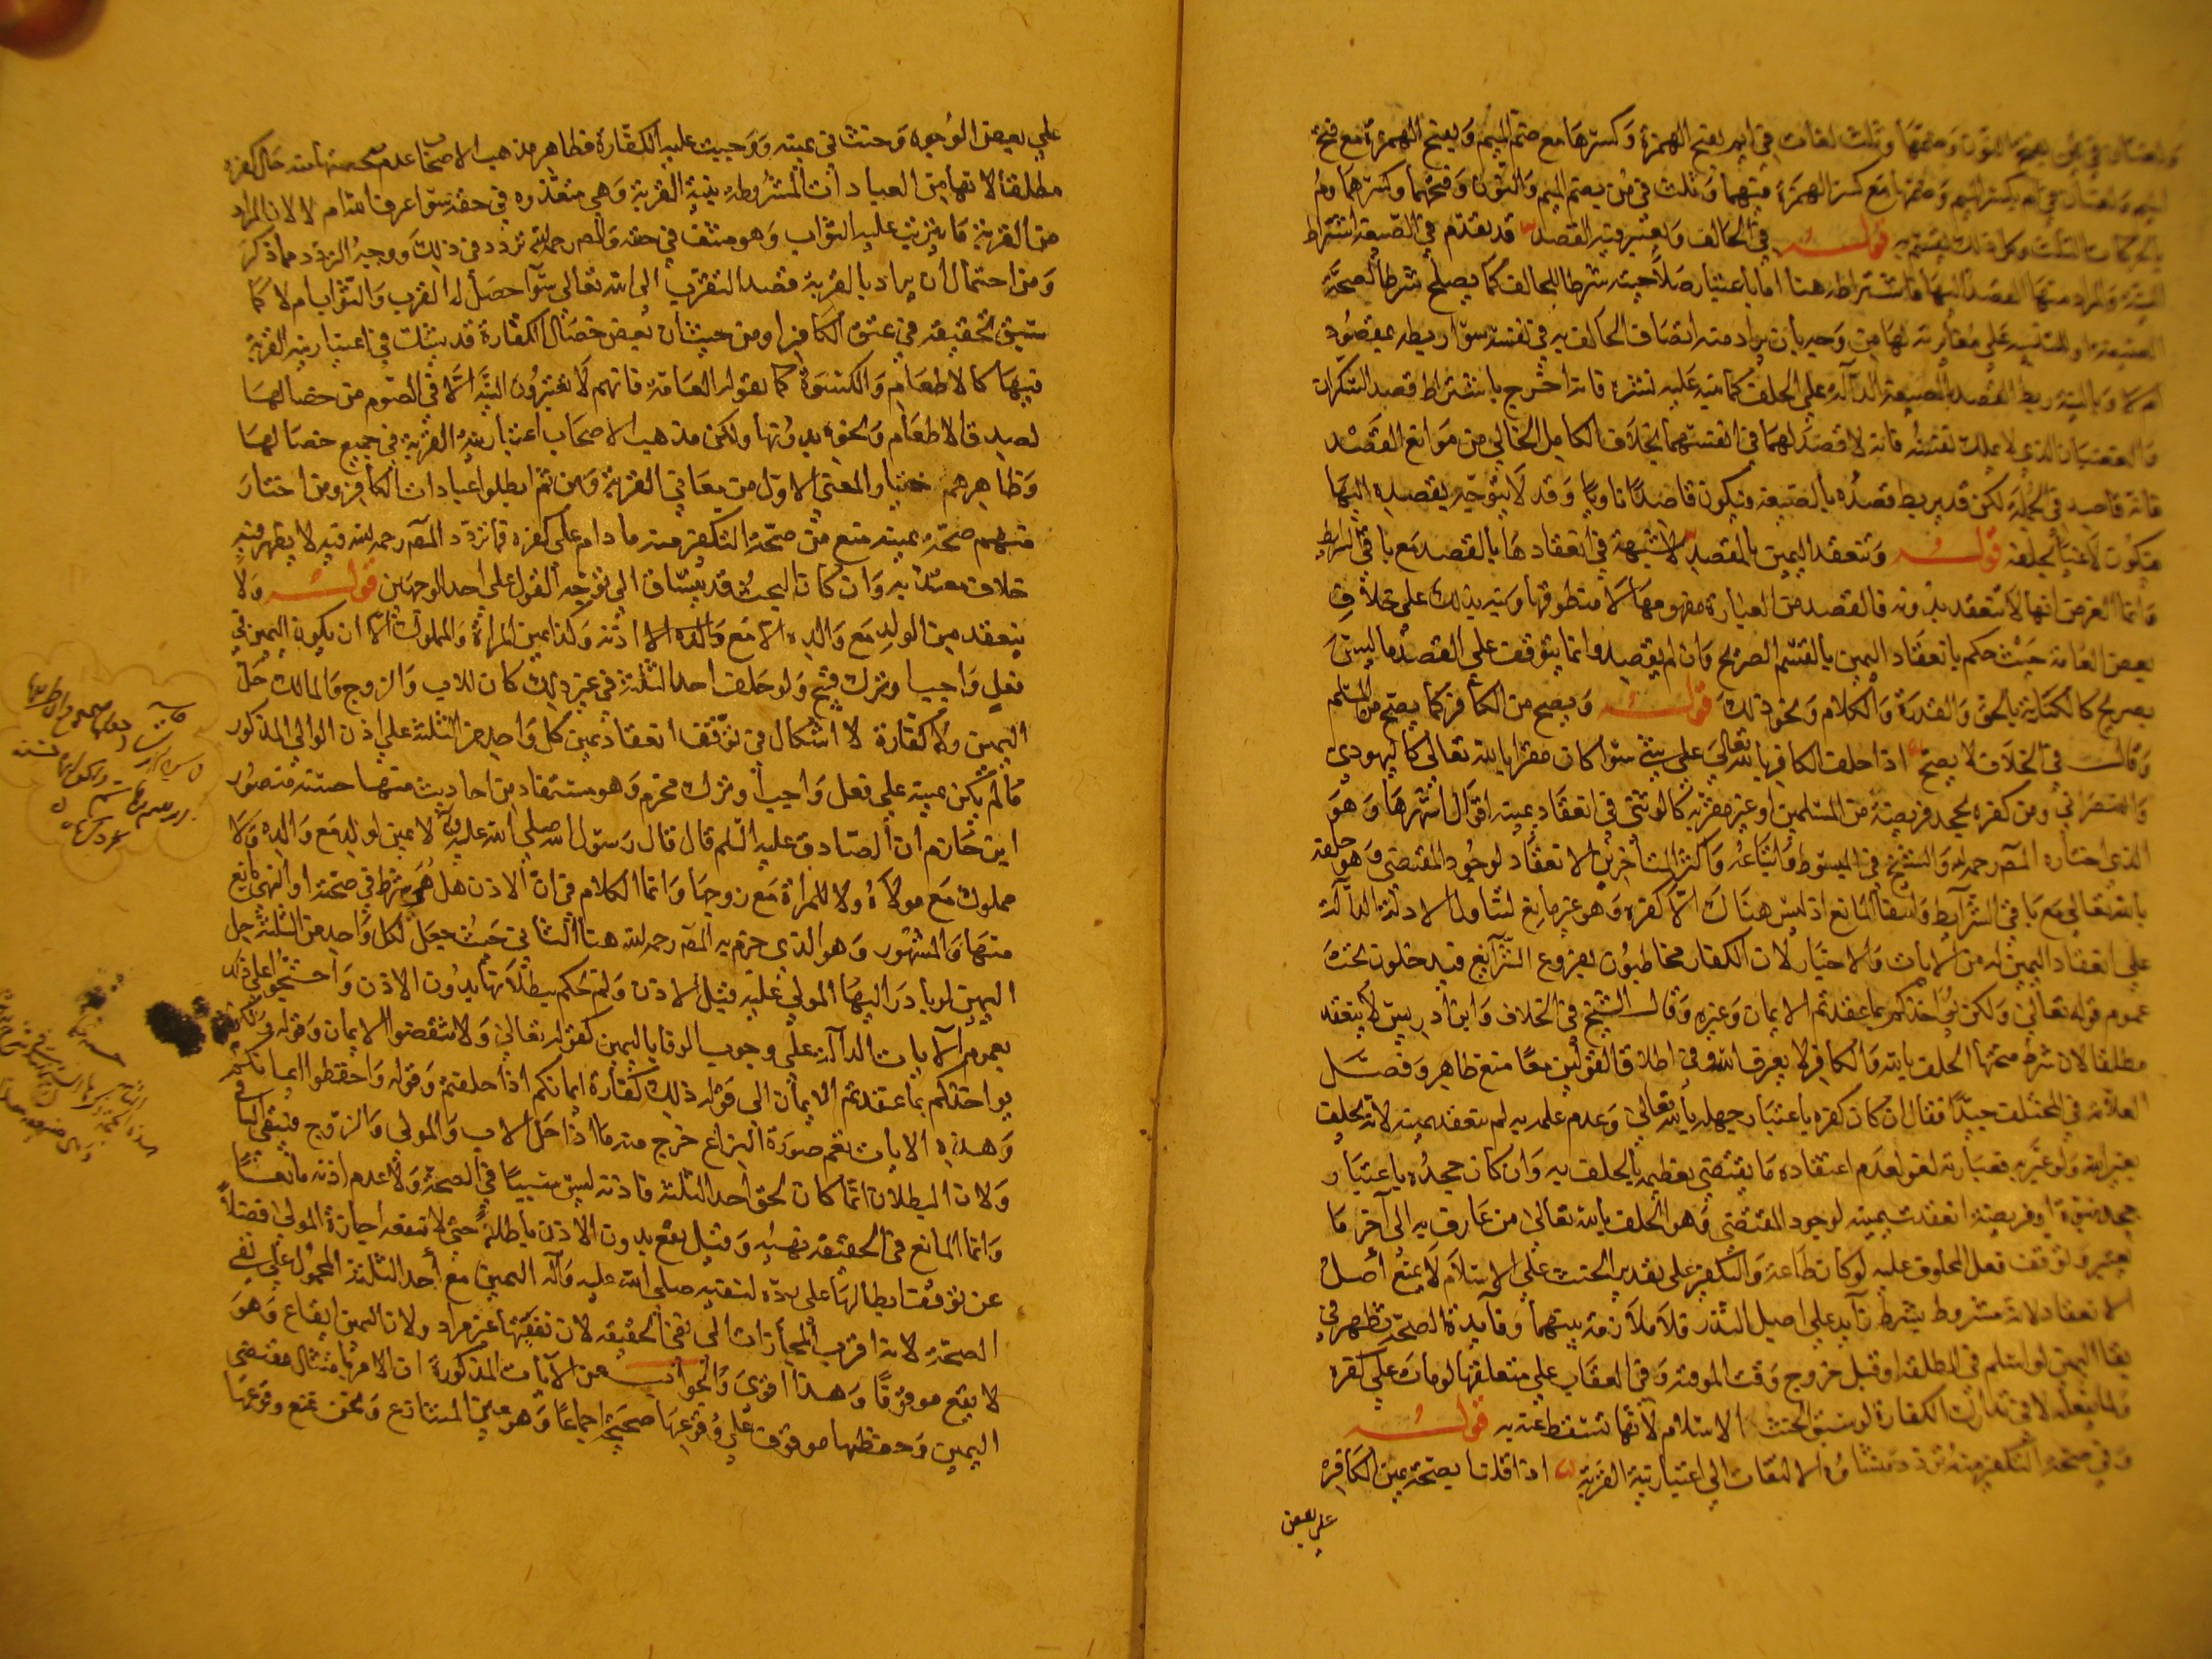 ولغتان في من بفتح النون وضمها وثلث لغات في ايم بفتح الهمزة وكسرها مع ضم الميم وبفتح الهمزة مع فتح
الميم ولغتان في ام بكسر الميم وضمها مع كسر الهمزة فيهما وثلث في من بضم الميم والنون وفتحهما وكسرهما وم
بالحركات الثلث وكل ذلك يقسم به قوله في الحالف ويعتبر فيه القصد قد تقدم في الصيغة اشتراط
النية والمراد منها القصد اليها فاشتراطه هنا اما باعتبار صلاحيته شرطا للحالف كما يصلح شرطا لصحة
الصيغة او للتنبيه على مغايرته لها من وجه بان يراد منه اتصاف الحالف به في نفسه سواء ربطه بمقصود
ام لا وبالنية ربط القصد بالصيغة الدالة على الحلف كما نبه عليه نشره فانه اخرج باشتراط قصد السكران
والغضبان الذي لا يملك نفسه فانه لا قصد لهما في انفسهما بخلاف الكامل الخالي من موانع القصد
فانه قاصد في الجملة لكن قد يربط قصده بالصيغة فيكون قاصدا ناويا وقد لا يتوجه بقصده اليها
فيكون لاغيا بحلفه قوله وتنعقد اليمين بالقصد لا شبهة في انعقادها بالقصد مع باقي الشرايط
وانما الغرض انها لا تنعقد بدونه فالقصد من العبارة مفهومها لا منطوقها ونبه بذلك على خلاف
بعض العامة حيث حكم بانعقاد اليمين بالقسم الصريح وان لم يقصد وانما يتوقف على القصد ما ليس
بصريح كالكناية بالحق والقدرة والكلام ونحو ذلك قوله ويصح من الكافر كما يصح من المسلم
وقال في الخلاف لا يصح اذا حلف الكافر بالله تعالى على شي سواء كان مقرا بالله تعالى كاليهودي
والنصراني ومن كفره بجحد فريضة من المسلمين او غير مقر به كالوثني في انعقاد يمينه اقوال اشهرها وهو
الذي اختاره المصـ رحمه الله والشيخ في المبسوط واتباعه واكثر المتاخرين الانعقاد لوجود المقتضي وهو حلفه
بالله تعالى مع باقي الشرايط وانتفا المانع اذ ليس هناك الا كفره وهو غير مانع لتناول الادلة الدالة
على انعقاد اليمين له من الايات والاخبار ولان الكفار مخاطبون بفروع الشرايع فيدخلون تحت
عموم قوله تعالى ولكن يؤاخذكم بما عقدتم الايمان وغيره وقال الشيخ في الخلاف وابن ادريس لا ينعقد
مطلقا لان شرط صحتها الحلف بالله والكافر لا يعرف الله وفي اطلاق القولين معا منع ظاهر وفصل
العلامة في المختلف جيدا فقال ان كان كفره باعتبار جهله بالله تعالى وعدم علمه به لم ينعقد يمينه لانه يحلف
بغير الله ولو عبر به فعبارته لغو لعدم اعتقاده ما يقتضي تعظيمه بالحلف به وان كان جحده باعتبار
جحد نبوة او فريضة انعقدت يمينه لوجود المقتضي وهو الحلف بالله تعالى من عارف به الى آخر ما
يعتبر وتوقف فعل المحلوف عليه لو كان طاعة والتكفير على تقدير الحنث على الاسلام لا يمنع اصل
الانعقاد لانه مشروط بشرط زايد على اصل النذر فلا ملازمة بينهما وفايدة الصحة تظهر في
بقا اليمين لو اسلم في المطلقة او قبل خروج وقت الموقتة وفي العقاب على متعلقها لو مات على كفره
ولما يفعله لا في تدارك الكفارة لو سبق الحنث الاسلام لانها تسقط عنه به قوله
وفي صحة التكفير منه تردد منشاؤه الالتفات الى اعتبار نية القربة اذا قلنا بصحة يمين الكافره
على بعض
على بعض الوجوه وحنث في يمينه ووجبت عليه الكفارة فظاهر مذهب الاصحاب عدم صحتها منه حال كفره
مطلقا لانها من العبادات المشروطة بنية القربة وهي متعذره في حقه سواء عرف الله ام لا لان المراد
من القربة ما يترتب عليه الثواب وهو منتف في حقه والمصـ رحمه الله تردد في ذلك ووجه التردد مما ذكر
ومن احتمال ان يراد بالقربة قصد التقرب الى الله تعالى سواء حصل له القرب والثواب ام لا كما
سبق تحقيقه في عتق الكافر او من حيث ان بعض خصال الكفارة قد يشك في اعتبار نية القربة
فيها كالاطعام والكسوة كما يقوله العامة فانهم لا يعتبرون النية الا في الصوم من خصالها
لصدق الاطعام والكسوة بدونها ولكن مذهب الاصحاب اعتبار نية القربة في جميع خصالها
وظاهرهم اختيار المعنى الاول من معاني القربة ومن ثم ابطلوا عبادات الكافر ومن اختار
منهم صحة يمينه منع من صحة التكفير منه ما دام على كفره فما تردد المصـ رحمه الله فيه لا يظهر فيه
خلاف معتد به وان كان البحث قد ينساق الى توجيه القول على احد الوجهين قوله ولا
ينعقد من الولد مع والده الا مع اذنه وكذا يمين المراة والمملوك الا ان يكون اليمين في
فعل واجب او ترك قبيح ولو حلف احد الثلثة في غير ذلك كان للاب والزوج والمالك حل
اليمين ولا كفارة لا اشكال في توقف انعقاد يمين كل واحد من الثلثة على اذن الوالي المذكور
ما لم يكن يمينه على فعل واجب او ترك محرم وهو مستفاد من احاديث منها حسنة منصور
ابن حازم ان الصادق عليه السلم قال قال رسول الله صلى الله عليه وآله لا يمين لولد مع والده ولا
مملوك مع مولاه ولا للمراة مع زوجها وانما الكلام في ان الاذن هل هو شرط في صحته او النهي مانع
منها والمشهور وهو الذي جزم به المصـ رحمه الله هنا الثاني حيث جعل لكل واحد من الثلثة حل
اليمين لو بادر اليها المولى عليه قبل الاذن ولم يحكم ببطلانها بدون الاذن واحتجوا على ذلك
بعموم الآيات الدالة على وجوب الوفا باليمين كقوله تعالى ولا تنقضوا الايمان وقوله ولكن
يواخذكم بما عقدتم الايمان الى قوله ذلك كفارة ايمانكم اذا حلفتم وقوله واحفظوا ايمانكم
وهذه الايات تعم صورة النزاع خرج منه ما اذا حل الاب والمولى والزوج فيبقى الباقي
ولان البطلان انما كان لحق احد الثلثة فاذنه ليس سببا في الصحة ولا عدم اذنه مانعا
وانما المانع في الحقيقة نهيه وقيل يقع بدون الاذن باطلة حتى لا تنفعه اجازة المولى فضلا
عن توقف ابطالها على رده لنفيه صلى الله عليه وآله اليمين مع احد الثلثة المحمول على نفي
الصحة لانه اقرب المجازات الى نفي الحقيقة لان نفيها غير مراد ولان اليمين ايقاع وهو
لا يقع موقوفا وهذا اقوى والجواب عن الآيات المذكورة ان الامر بامتثال مقتضى
اليمين وحفظها موقوف على وقوعها صحيحة اجماعا وهو عين المتنازع ونحن نمنع وقوعها